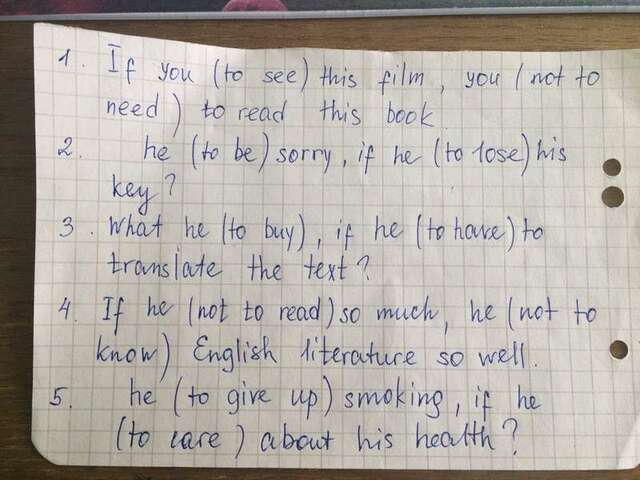 1. If you (to see) this film, you (not to
need) to read this book
2. he (to be) sorry, if he (to lose) his
key?
3. What he (to buy), if he (to have) to
translate the text?
4. If he (not to read) so much, he (not to
know) English literature so well.
5. he (to give up) smoking, if he
(to care) about his health?